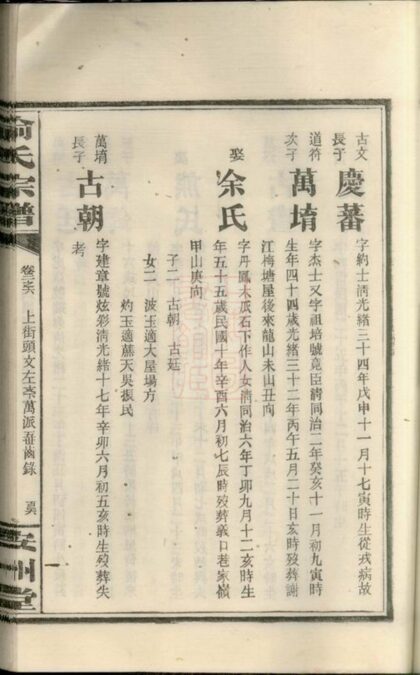 古文
長子
慶蕃
字純士清光緒三十四年戊申十一月十七寅時生從戎病故
道符
次子
萬堉
字杰士又字祖培號竟臣清同治二年癸亥十一月初九寅時
生年四十四歲光緒三十二年丙午五月二十日亥時歿葬謝
江梅塘屋後來龍山未山丑向
娶
余氏
字丹鳳木瓜石下作人女清同治六年丁卯九月十二亥時生
年五十五歲民國十年辛酉六月初七辰時歿葬義口巷家嶺
甲山庚向
子二 古朝 古延
女二 波玉適大屋場方
灼玉適蘸天吳振民
萬堉
長子
古朝
字建章號炫彩清光緒十七年辛卯六月初五亥時生歿葬失
考
氏宗譜
上街頭文左萬派齒錄
州堂